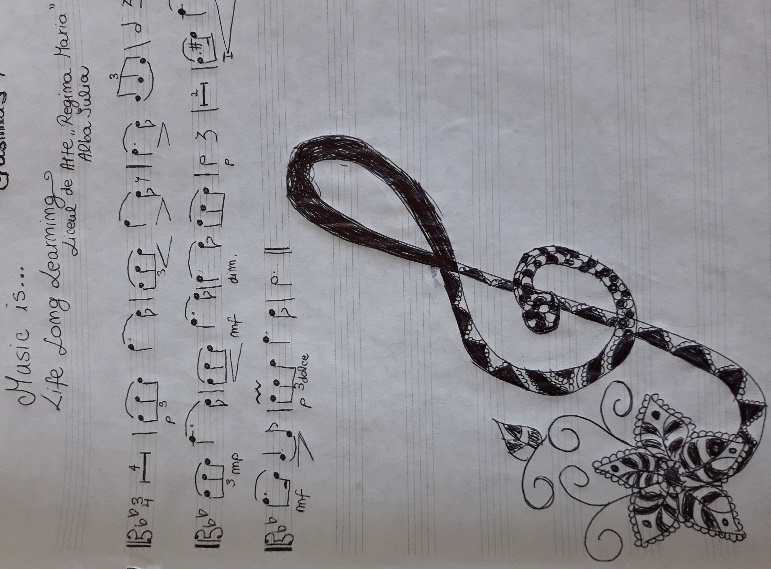 Music is...
Life Long Learning
Liceul de Arte „Regina Maria"
Alba Iulia
3 4 4 p 3 3 3
3 mp mf dim. p 2
mf p 3 dolce